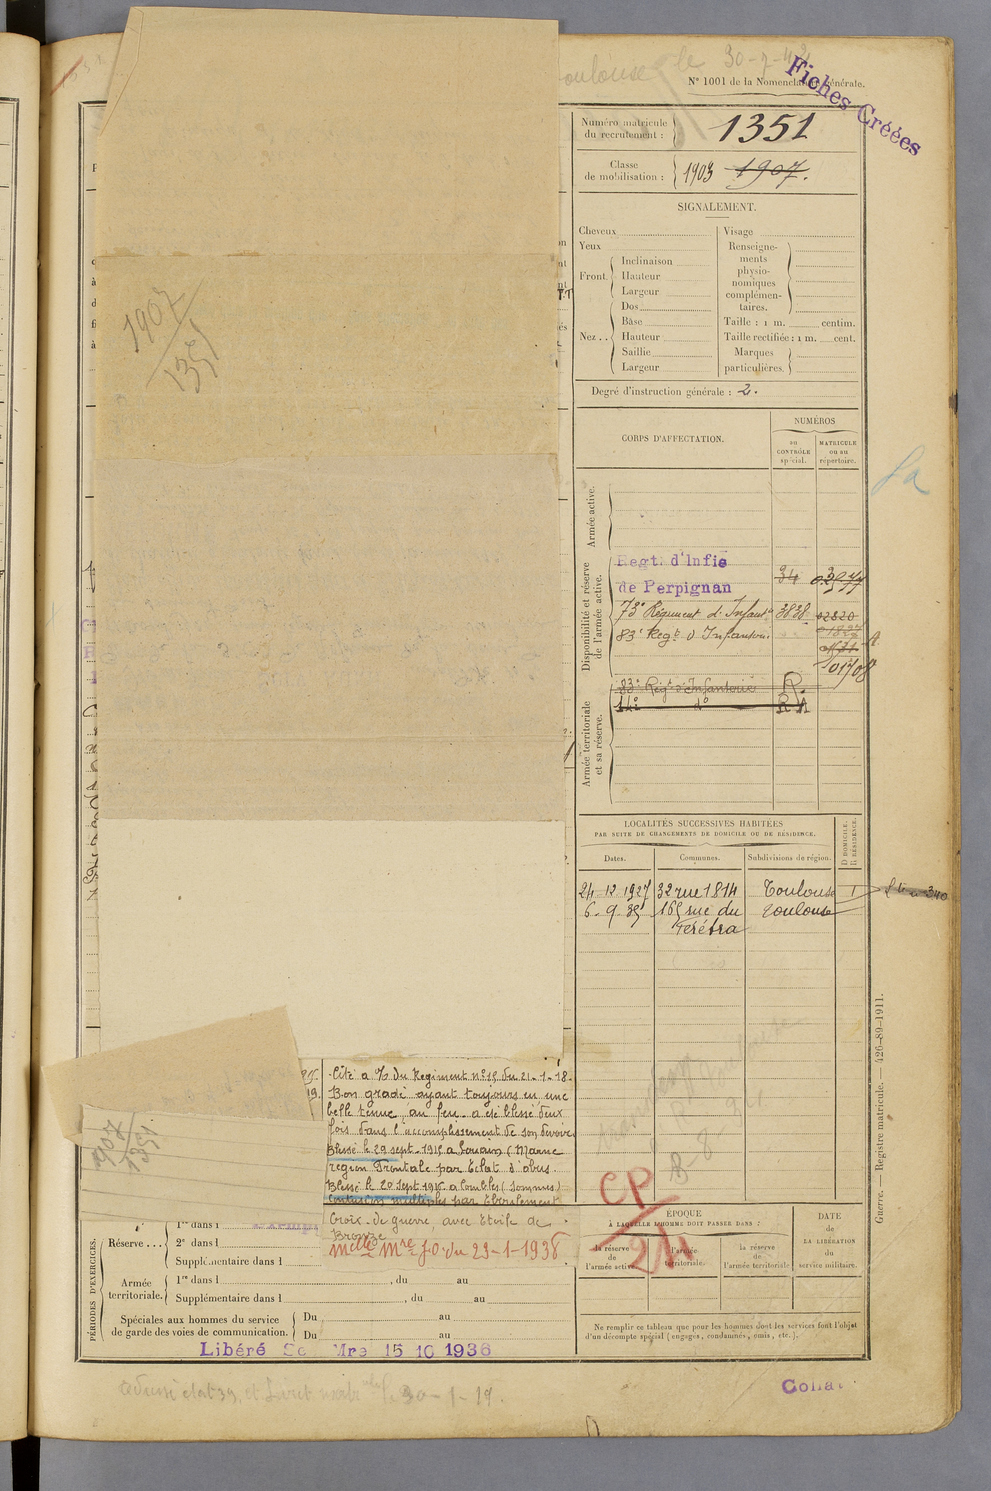 Toulouse le 30-7-42
N° 1001 de la Nomenclature générale.
Fiches Créées
Numéro matricule
du recrutement : 1351
Classe
de mobilisation : 1903 1907.
SIGNALEMENT.
Cheveux
Yeux
Front.
Inclinaison
Hauteur
Largeur
Nez . .
Dos
Base
Hauteur
Saillie
Largeur
Visage
Renseigne-
ments
physio-
nomiques
complémen-
taires.
Taille : 1 m. centim.
Taille rectifiée : 1 m. cent.
Marques
particulières.
Degré d'instruction générale : 2.
1907
1351
CORPS D'AFFECTATION.
NUMÉROS
au
CONTRÔLE
spécial.
MATRICULE
ou au
répertoire.
Armée active.
Disponibilité et réserve
de l'armée active.
Regt. d'Infie
de Perpignan 34
73e Régiment d'Infantie 3838
83e Regt d'Infanterie
01708
Armée territoriale
et sa réserve.
83e Régt d'Infanterie
14e do
LOCALITÉS SUCCESSIVES HABITÉES
PAR SUITE DE CHANGEMENTS DE DOMICILE OU DE RÉSIDENCE.
D. DOMICILE.
R. RÉSIDENCE.
Dates. Communes. Subdivisions de région.
24 12 1927 32 rue 1814 Toulouse
6-9 35 165 rue du Toulouse
Férétra
Guerre. — Registre matricule. — 426-89-1911.
Cité a l'O du Regiment n°15 du 21-1-18.
Bon gradé ayant toujours eu une
belle tenue au feu. a été blessé deux
fois dans l'accomplissement de son devoir
Blessé le 29 sept. 1915 a Souain (Marne
region Frontale par Eclat d'obus.
Blessé le 20 Sept 1916 a Combles (Somme)
Contusion multiples par Eboulement
Croix de guerre, avec Etoile de
Bronze
1907
1351
CP
24
B-8
PÉRIODES D'EXERCICES.
Réserve . . .
1re dans l
2e dans l
Supplémentaire dans l
Armée
territoriale.
1re dans l , du au
Supplémentaire dans l , du au
Spéciales aux hommes du service
de garde des voies de communication.
Du au
Du au
Mre 70 du 23-1-1936
Libéré Se Mre 15 10 1936
ÉPOQUE
À LAQUELLE L'HOMME DOIT PASSER DANS :
la réserve
de
l'armée active.
l'armée
territoriale.
la réserve
de
l'armée territoriale
DATE
de
LA LIBÉRATION
du
service militaire.
Ne remplir ce tableau que pour les hommes dont les services font l'objet
d'un décompte spécial (engagés, condamnés, omis, etc.).
le 30-1-19.